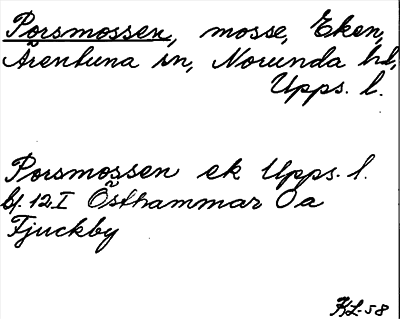 Porsmossen, mosse, Eken,
Ärentuna sn, Norunda hd,
Upps. l.
Porsmossen ek Upps. l.
bl. 12 I Östhammar Öa
Fjuckby
KL-58